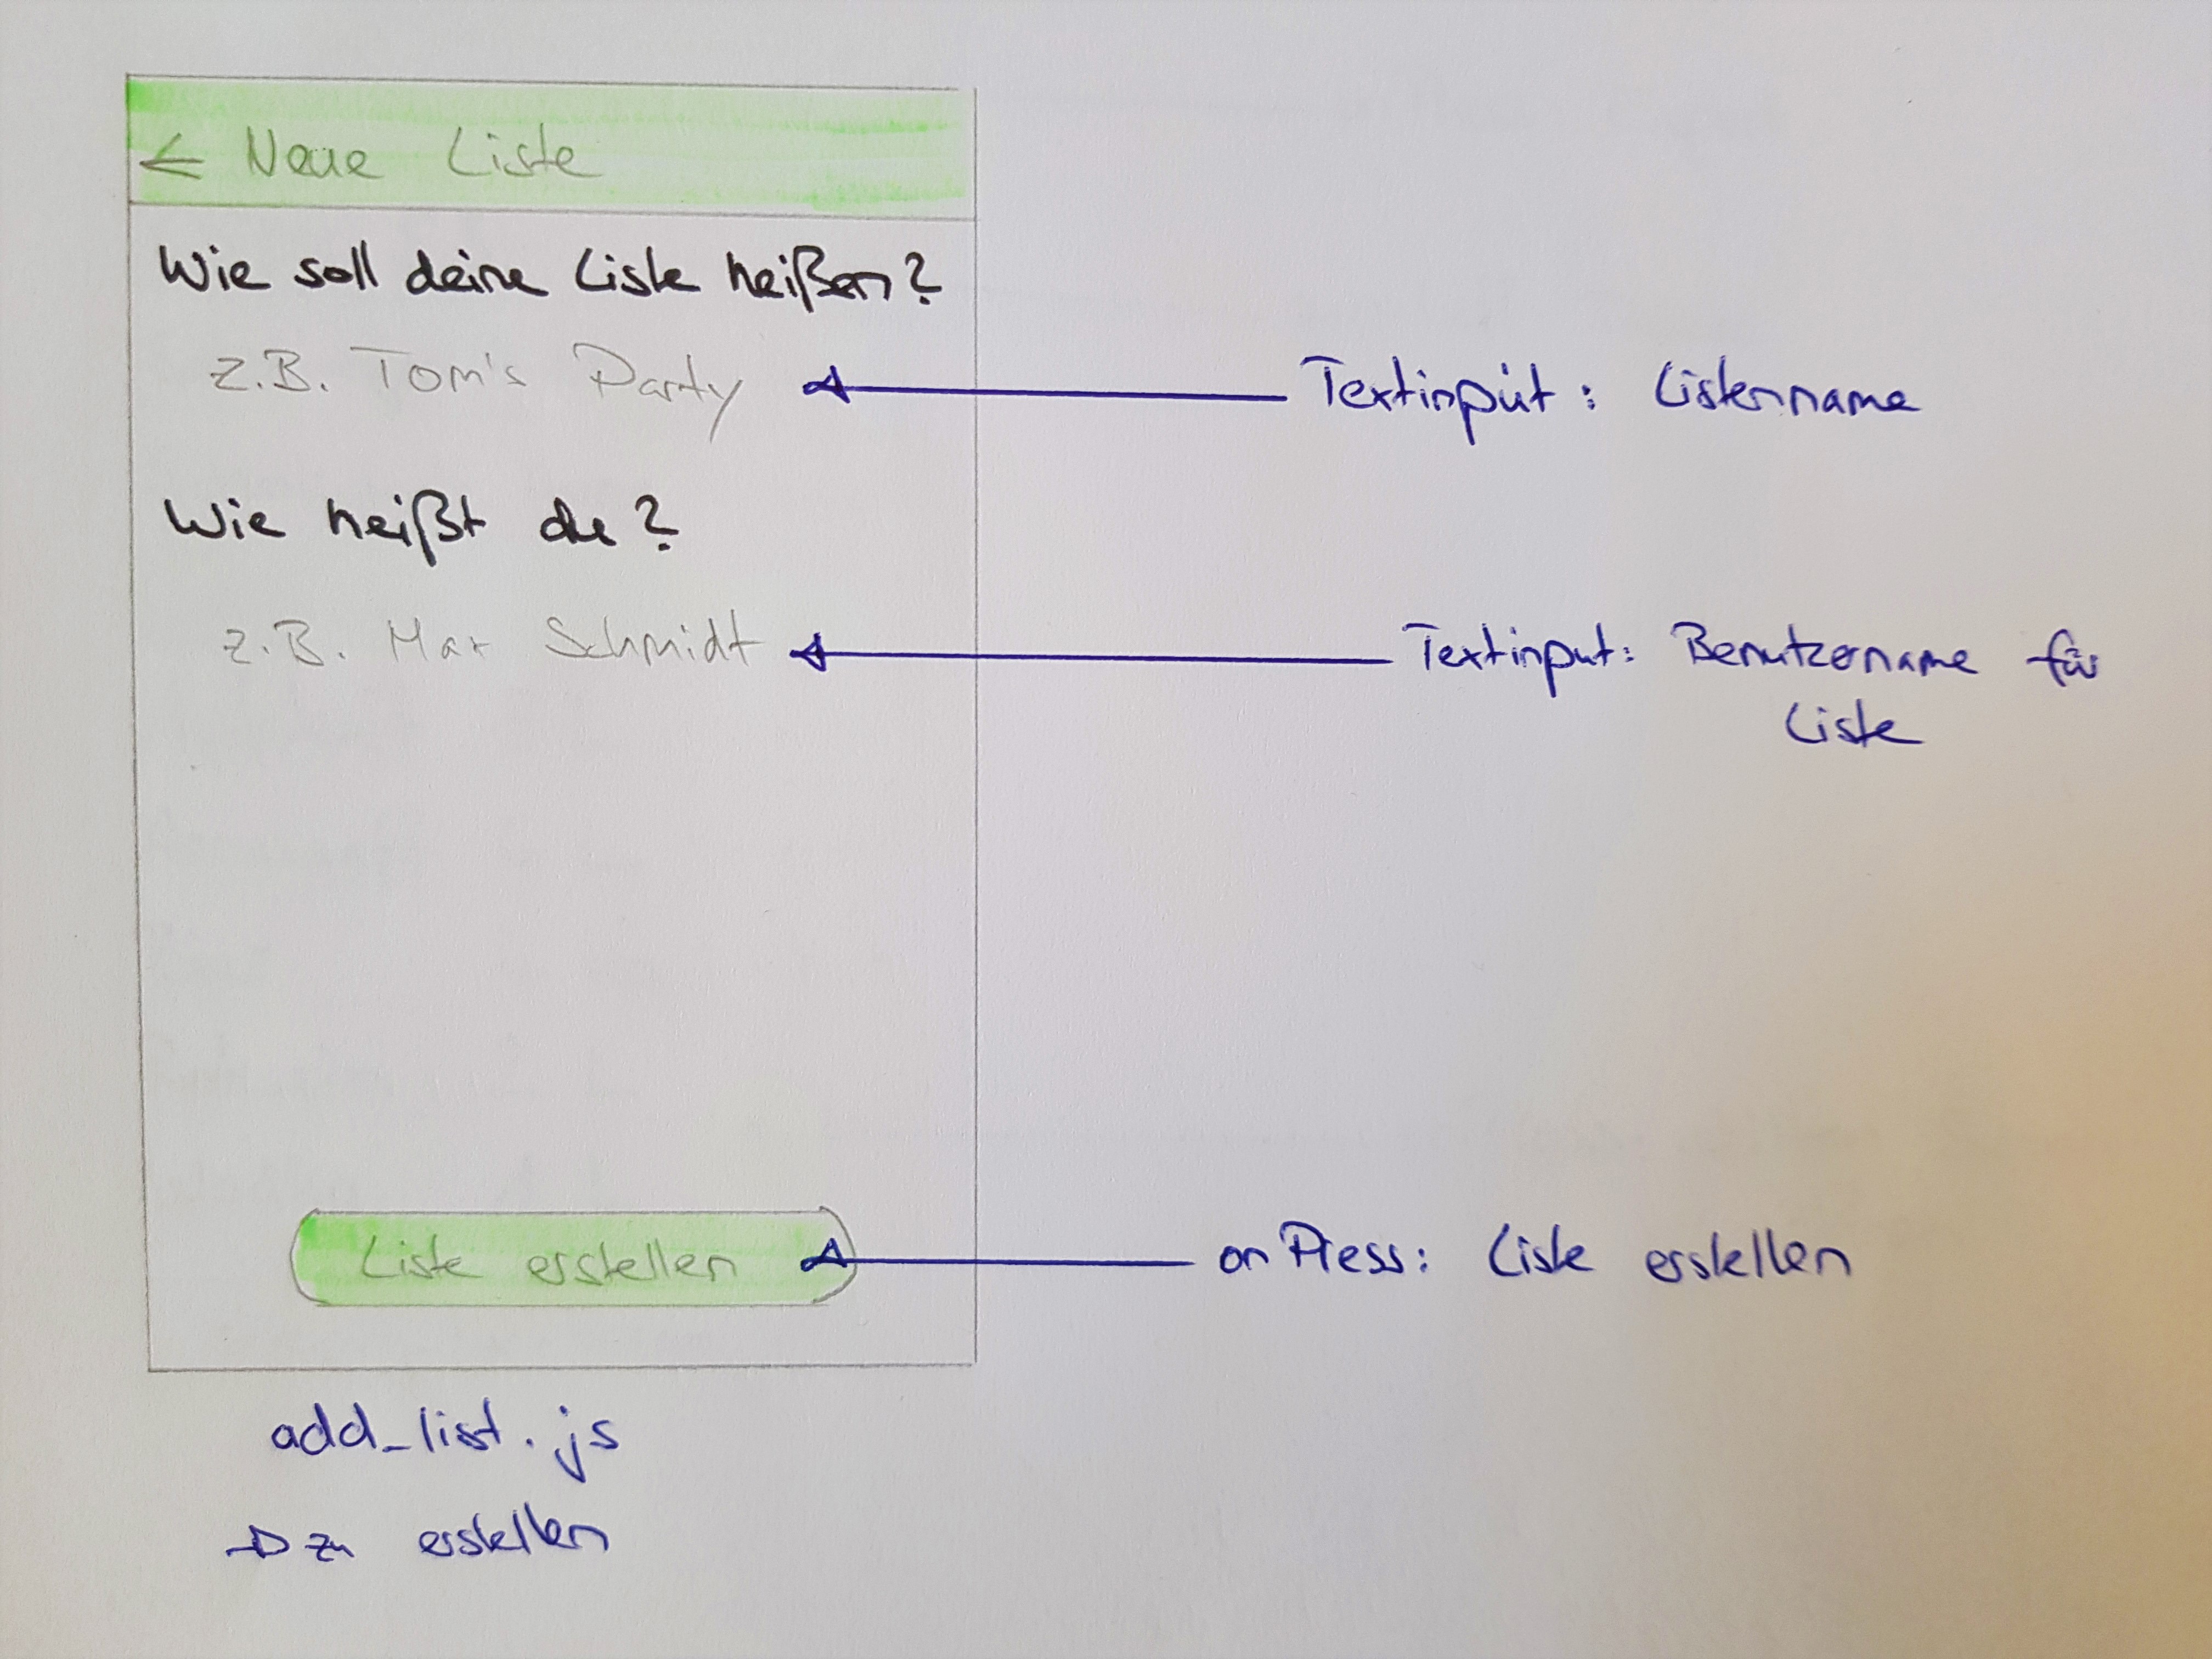 ← Neue Liste
Wie soll deine Liste heißen?
z.B. Tom's Party
Textinput: Listenname
Wie heißt du?
z.B. Max Schmidt
Textinput: Benutzername für
Liste
Liste erstellen
onPress: Liste erstellen
add_list.js
→ zu erstellen